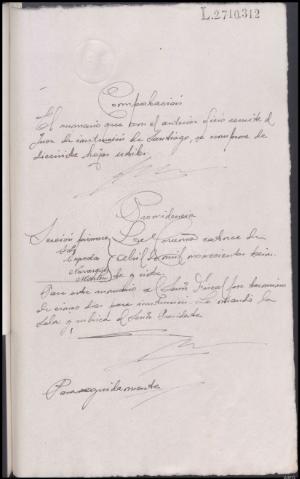 L.2710.312
Comprobación
El sumario que con el anterior oficio remite el
Juez de instrucción de Santiago, se compone de
diecisiete hojas utiles.
Providencia
Sección primera
Cepeda
La Coruña catorce de
Abril de mil novecientos trein-
ta y siete
Pase este sumario al Señor Fiscal por termino
de cinco dias para instrucción. Lo mandó la
Sala y rubrica el Señor Presidente
Paraseguidamente